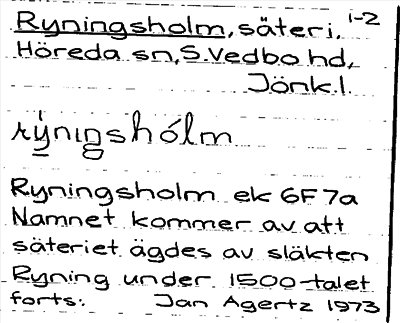 Ryningsholm, säteri, 1-2
Höreda sn, S.Vedbo hd,
Jönk.l.
rýningshólm
Ryningsholm ek 6F7a
Namnet kommer av att
säteriet ägdes av släkten
Ryning under 1500-talet
forts. Jan Agertz 1973